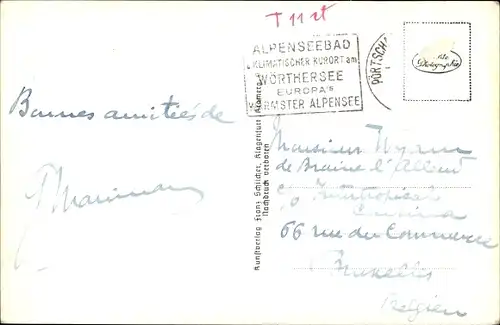 T 11 rt
ALPENSEEBAD
KLIMATISCHER KURORT am
WÖRTHERSEE
EUROPA'S
WÄRMSTER ALPENSEE
PÖRTSCH
Photographie
Bonnes amitiés de
Kunstverlag Franz Schilcher, Klagenfurt
Nachdruck verboten
Monsieur
de Braine l'Alleud
c/o
66 rue du Commerce
Bruxelles
Belgien